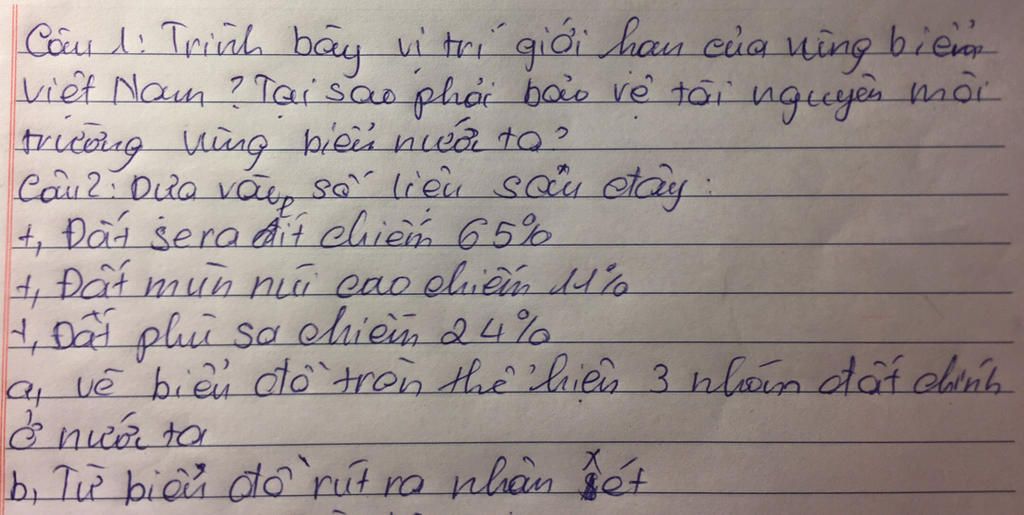 Câu 1: Trình bày vị trí giới hạn của vùng biển
Việt Nam? Tại sao phải bảo vệ tài nguyên môi
trường vùng biển nước ta?
Câu 2: Dựa vào số liệu sau đây:
+, Đất feralit chiếm 65%
+, Đất mùn núi cao chiếm 11%
+, Đất phù sa chiếm 24%
a, vẽ biểu đồ tròn thể hiện 3 nhóm đất chính
ở nước ta
b, Từ biểu đồ rút ra nhận xét